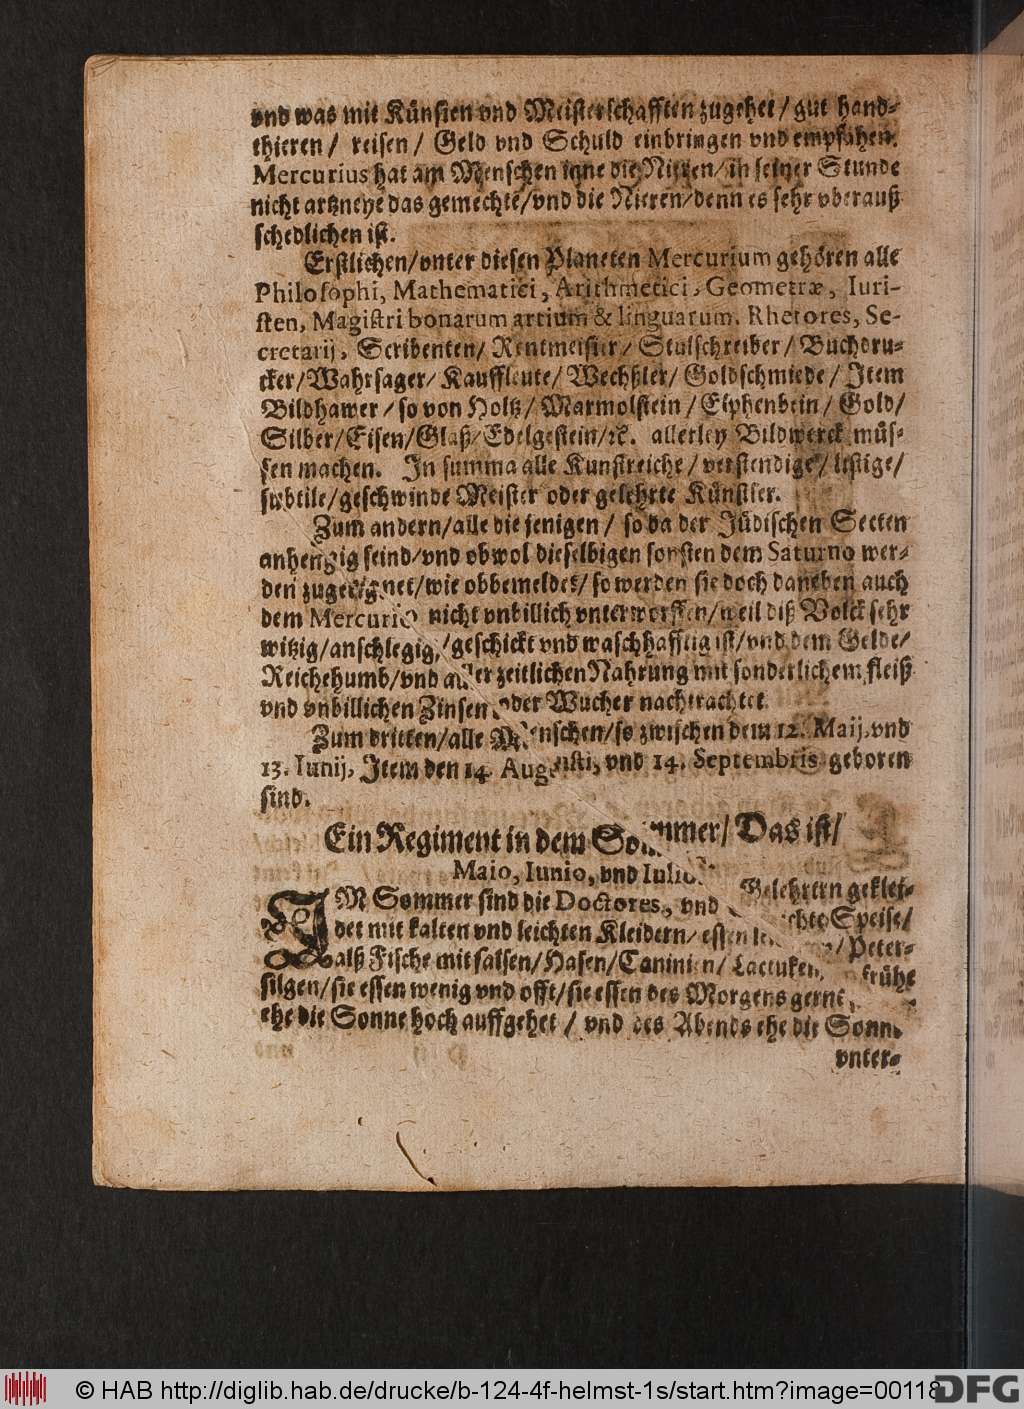 vnd was mit Künsten vnd Meisterschafften zugehet/ gut hand-
thieren/ reisen/ Geld vnd Schuld einbringen vnd empfahen.
Mercurius hat am Menschen inne die Nieren/ in seiner Stunde
nicht artzneye das gemechte/ vnd die Nieren/ denn es sehr vberauß
schedlichen ist.
Erstlichen/ vnter diesen Planeten Mercurium gehören alle
Philosophi, Mathematici, Arithmetici, Geometræ, Iuri-
sten, Magistri bonarum artium & linguarum, Rhetores, Se-
cretarij, Scribenten/ Rentmeister/ Stulschreiber/ Buchdru-
cker/ Wahrsager/ Kauffleute/ Wechßler/ Goldschmiede/ Item
Bildhawer/ so von Holtz/ Marmolstein/ Elphenbein/ Gold/
Silber/ Eisen/ Glaß/ Edelgestein/ ꝛc. allerley Bildwerck müs-
sen machen. In summa alle Kunstreiche/ verstendige/ listige/
subtile/ geschwinde Meister oder gelehrte Künstler.
Zum andern/ alle die jenigen/ so da der Jüdischen Secten
anhengig seind/ vnd obwol dieselbigen sonsten dem Saturno wer-
den zugeeignet/ wie obbemeldet/ so werden sie doch daneben auch
dem Mercurio nicht vnbillich vnterworffen/ weil diß Volck sehr
witzig/ anschlegig/ geschickt vnd waschhafftig ist/ vnd dem Gelde/
Reichthumb/ vnd aller zeitlichen Nahrung mit sonderlichem fleiß
vnd vnbillichen Zinsen oder Wucher nachtrachtet.
Zum dritten/ alle Menschen/ so zwischen dem 12. Maij, vnd
13. Iunij, Item den 14. Augusti, vnd 14. Septembris geboren
sind.
Ein Regiment in dem Sommer/ Das ist/
Maio, Iunio, vnd Iulio.
IM Sommer sind die Doctores, vnd Gelehrten geklei-
det mit kalten vnd leichten Kleidern/ essen leichte Speise/
alß Fische mit salsen/ Hasen/ Caninien/ Lactuken, Peter-
silgen/ sie essen wenig vnd offt/ sie essen des Morgens gerne frühe
ehe die Sonne hoch auffgehet/ vnd des Abends ehe die Sonne
vnter-
© HAB http://diglib.hab.de/drucke/b-124-4f-helmst-1s/start.htm?image=00118
DFG